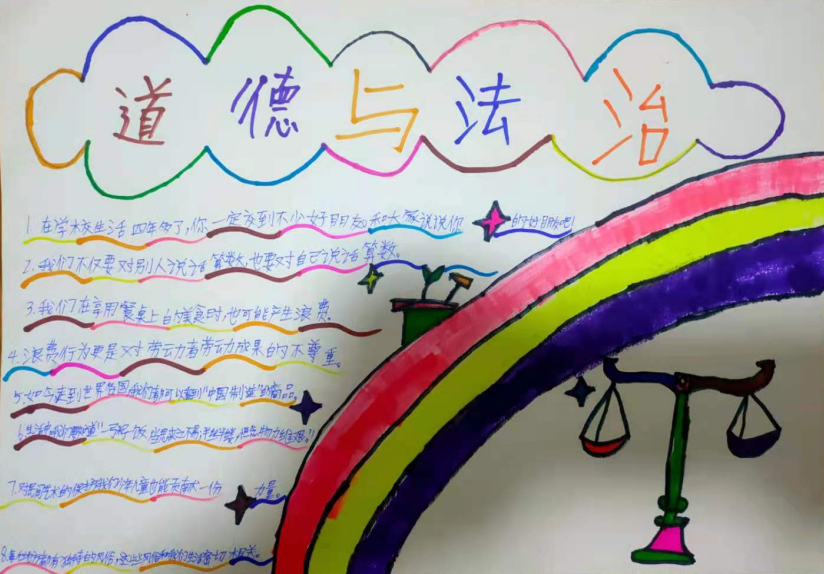 道德与法治
1. 在学校生活四年多了,你一定交到不少好朋友,和大家说说你的好朋友吧!
2. 我们不仅要对别人说话算数,也要对自己说话算数。
3. 我们在享用餐桌上的美食时,也可能产生浪费。
4. 浪费行为更是对劳动者劳动成果的不尊重。
5. 如今走到世界各国我们都可以看到"中国制造"的商品。
6.
7. 我们少年儿童也能贡献一份力量。
8. 独特的风俗,这些风俗和我们生活密切相关。